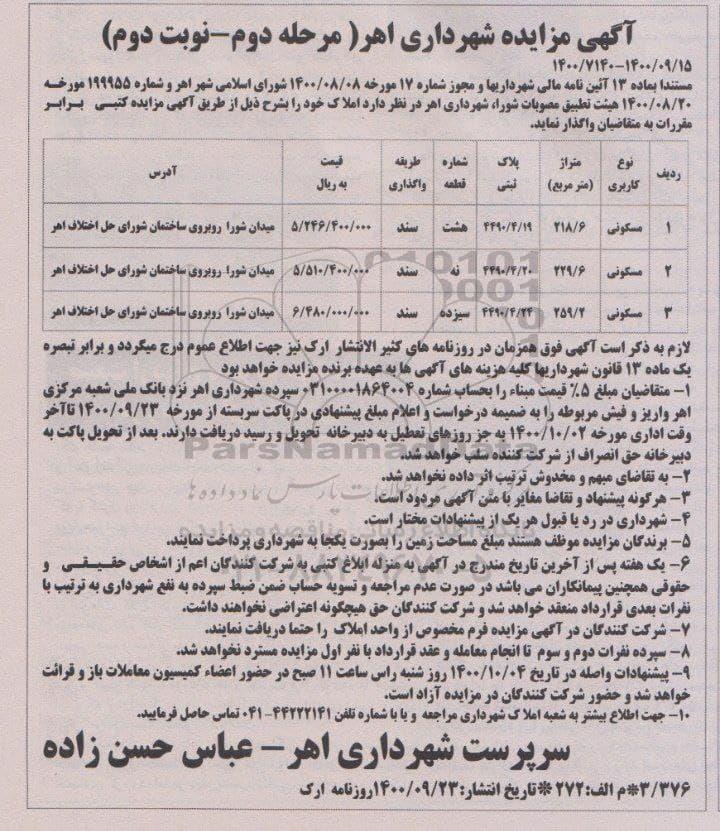 آگهی مزایده شهرداری اهر( مرحله دوم-نوبت دوم)
۱۴۰۰/۰۹/۱۵-۱۴۰۰/۷۱۴۰
مستندا بماده ۱۳ آئین نامه مالی شهرداریها و مجوز شماره ۱۷ مورخه ۱۴۰۰/۰۸/۰۸ شورای اسلامی شهر اهر و شماره ۱۹۹۹۵۵ مورخه
۱۴۰۰/۰۸/۲۰ هیئت تطبیق مصوبات شورا، شهرداری اهر در نظر دارد املاک خود را بشرح ذیل از طریق آگهی مزایده کتبی برابر
مقررات به متقاضیان واگذار نماید.
ردیف نوع کاربری متراژ (متر مربع) پلاک ثبتی شماره قطعه طریقه واگذاری قیمت به ریال آدرس
۱ مسکونی ۲۱۸/۶ ۴۴۹۰/۴/۱۹ هشت سند ۵/۲۴۶/۴۰۰/۰۰۰ میدان شورا روبروی ساختمان شورای حل اختلاف اهر
۲ مسکونی ۲۲۹/۶ ۴۴۹۰/۴/۲۰ نه سند ۵/۵۱۰/۴۰۰/۰۰۰ میدان شورا روبروی ساختمان شورای حل اختلاف اهر
۳ مسکونی ۲۵۹/۲ ۴۴۹۰/۴/۲۴ سیزده سند ۶/۴۸۰/۰۰۰/۰۰۰ میدان شورا روبروی ساختمان شورای حل اختلاف اهر
لازم به ذکر است آگهی فوق همزمان در روزنامه های کثیر الانتشار ارک نیز جهت اطلاع عموم درج میگردد و برابر تبصره
یک ماده ۱۳ قانون شهرداریها کلیه هزینه های آگهی ها به عهده برنده مزایده خواهد بود
۱- متقاضیان مبلغ ۵٪ قیمت مبناء را بحساب شماره ۰۳۱۰۰۰۰۱۸۶۴۰۰۴ سپرده شهرداری اهر نزد بانک ملی شعبه مرکزی
اهر واریز و فیش مربوطه را به ضمیمه درخواست و اعلام مبلغ پیشنهادی در پاکت سربسته از مورخه ۱۴۰۰/۰۹/۲۳ تاآخر
وقت اداری مورخه ۱۴۰۰/۱۰/۰۲ به جز روزهای تعطیل به دبیرخانه تحویل و رسید دریافت دارند. بعد از تحویل پاکت به
دبیرخانه حق انصراف از شرکت کننده سلب خواهد شد.
۲- به تقاضای مبهم و مخدوش ترتیب اثر داده نخواهد شد.
۳- هرگونه پیشنهاد و تقاضا مغایر با متن آگهی مردود است.
۴- شهرداری در رد یا قبول هر یک از پیشنهادات مختار است.
۵- برندگان مزایده موظف هستند مبلغ مساحت زمین را بصورت یکجا به شهرداری پرداخت نمایند.
۶- یک هفته پس از آخرین تاریخ مندرج در آگهی به منزله ابلاغ کتبی به شرکت کنندگان اعم از اشخاص حقیقی و
حقوقی همچنین پیمانکاران می باشد در صورت عدم مراجعه و تسویه حساب ضمن ضبط سپرده به نفع شهرداری به ترتیب با
نفرات بعدی قرارداد منعقد خواهد شد و شرکت کنندگان حق هیچگونه اعتراضی نخواهند داشت.
۷- شرکت کنندگان در آگهی مزایده فرم مخصوص از واحد املاک را حتما دریافت نمایند.
۸- سپرده نفرات دوم و سوم تا انجام معامله و عقد قرارداد با نفر اول مزایده مسترد نخواهد شد.
۹- پیشنهادات واصله در تاریخ ۱۴۰۰/۱۰/۰۴ روز شنبه راس ساعت ۱۱ صبح در حضور اعضاء کمیسیون معاملات باز و قرائت
خواهد شد و حضور شرکت کنندگان در مزایده آزاد است.
۱۰- جهت اطلاع بیشتر به شعبه املاک شهرداری مراجعه و یا با شماره تلفن ۴۴۲۲۲۱۴۱-۰۴۱ تماس حاصل فرمایید.
سرپرست شهرداری اهر- عباس حسن زاده
۳/۳۷۶*م الف:۲۷۲*تاریخ انتشار:۱۴۰۰/۰۹/۲۳روزنامه ارک
ParsNamadData